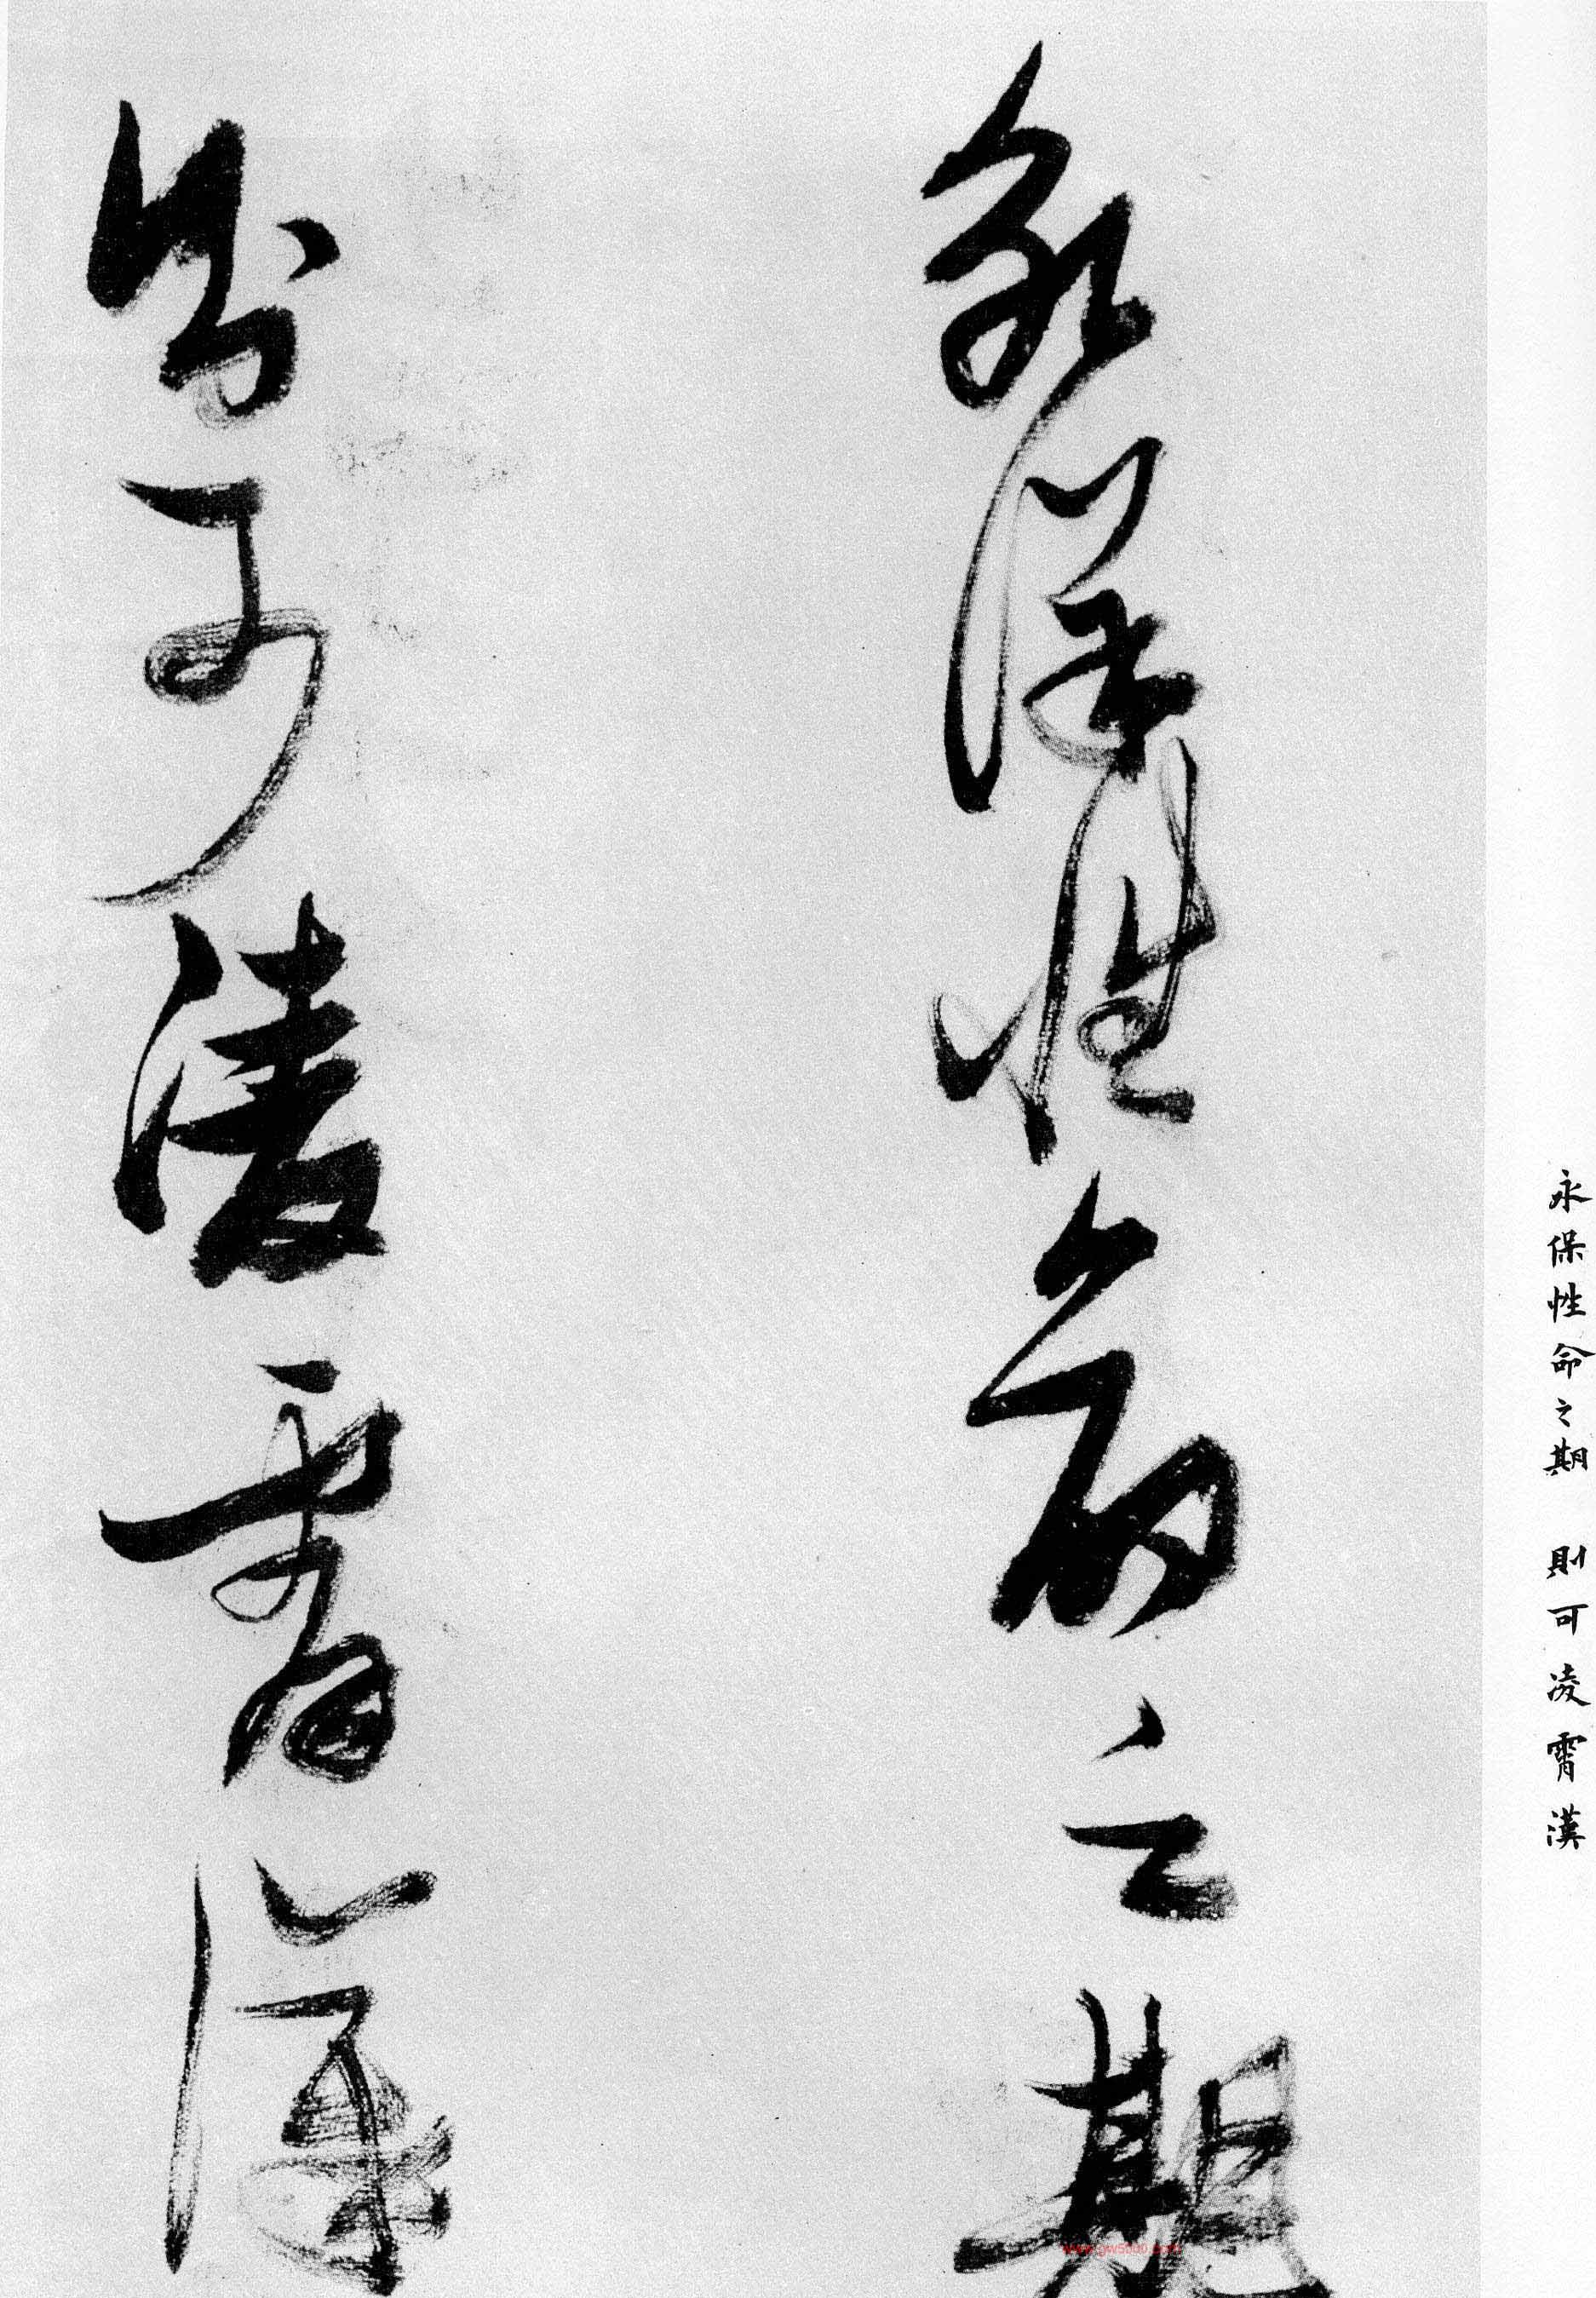 永保性命之期
則可凌霄漢
永保性命之期 則可凌霄漢
www.gw5000.com